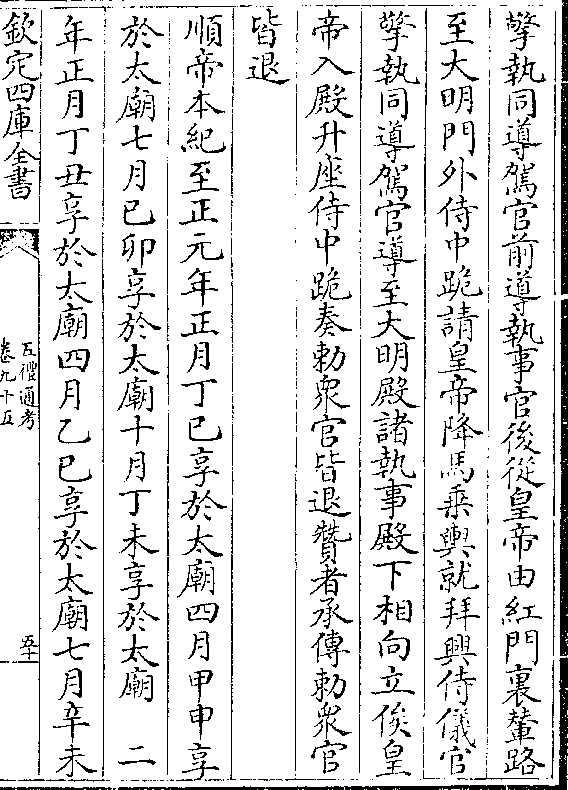 擎執同導駕官前導執事官後從皇帝由紅門裏輦路
至大明門外侍中跪請皇帝降馬乗輿就拜興侍儀官
擎執同導駕官導至大明殿諸執事殿下相向立俟皇
帝入殿升座侍中跪奏勅衆官皆退贊者承傳勅衆官
皆退
順帝本紀至正元年正月丁巳享於太廟四月甲申享
於太廟七月已卯享於太廟十月丁未享於太廟　二
年正月丁丑享於太廟四月乙巳享於太廟七月辛未
欽定四庫全書
五禮通考
卷九十五
五十